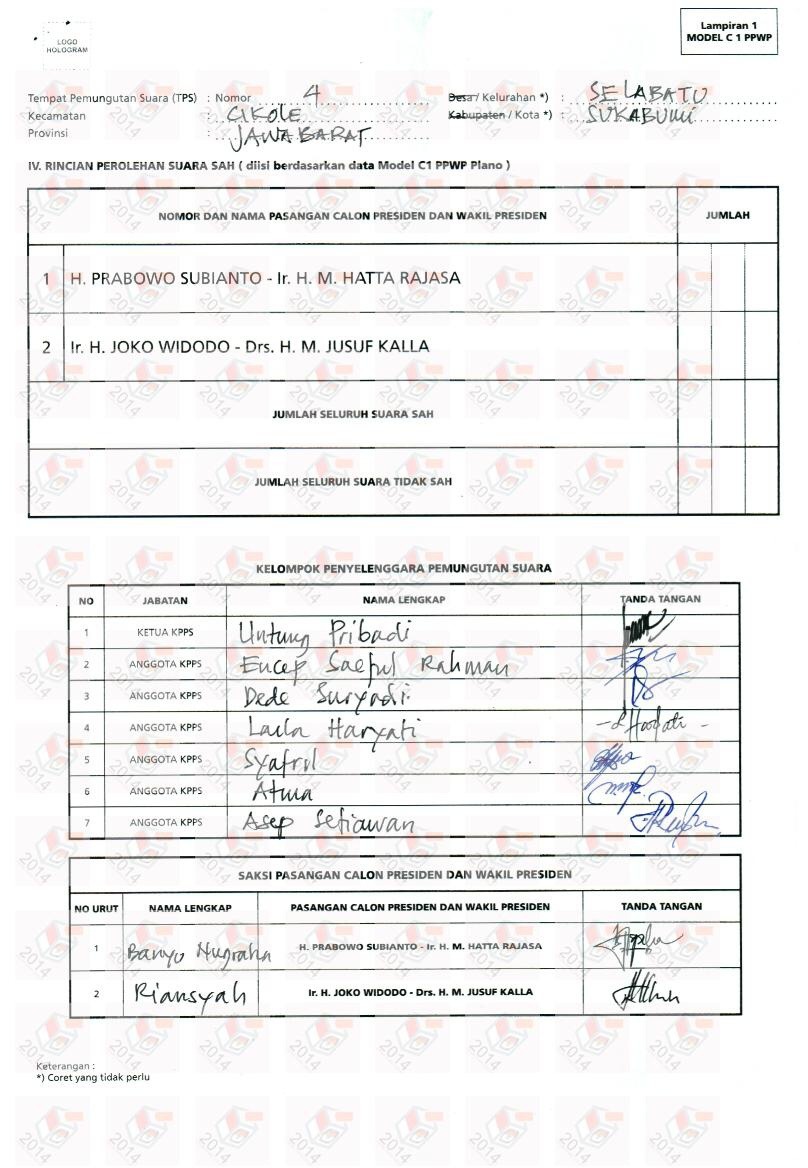 LOGO
HOLOGRAM
Lampiran 1
MODEL C 1 PPWP
Tempat Pemungutan Suara (TPS) : Nomor 4 Desa / Kelurahan *) : SELABATU
Kecamatan : CIKOLE Kabupaten / Kota *) : SUKABUMI
Provinsi : JAWA BARAT
IV. RINCIAN PEROLEHAN SUARA SAH ( diisi berdasarkan data Model C1 PPWP Plano )
NOMOR DAN NAMA PASANGAN CALON PRESIDEN DAN WAKIL PRESIDEN JUMLAH
1 H. PRABOWO SUBIANTO - Ir. H. M. HATTA RAJASA
2 Ir. H. JOKO WIDODO - Drs. H. M. JUSUF KALLA
JUMLAH SELURUH SUARA SAH
JUMLAH SELURUH SUARA TIDAK SAH
KELOMPOK PENYELENGGARA PEMUNGUTAN SUARA
NO JABATAN NAMA LENGKAP TANDA TANGAN
1 KETUA KPPS Untung Pribadi
2 ANGGOTA KPPS Encep Saeful Rahman
3 ANGGOTA KPPS Dede Suryadi
4 ANGGOTA KPPS Laila Haryati
5 ANGGOTA KPPS Syafril
6 ANGGOTA KPPS Atma
7 ANGGOTA KPPS Asep Setiawan
SAKSI PASANGAN CALON PRESIDEN DAN WAKIL PRESIDEN
NO URUT NAMA LENGKAP PASANGAN CALON PRESIDEN DAN WAKIL PRESIDEN TANDA TANGAN
1 Banyo Nugraha H. PRABOWO SUBIANTO - Ir. H. M. HATTA RAJASA
2 Riansyah Ir. H. JOKO WIDODO - Drs. H. M. JUSUF KALLA
Keterangan :
*) Coret yang tidak perlu
2014